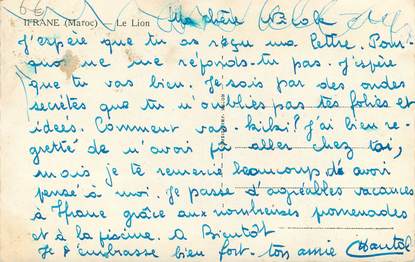 6€
IFRANE (Maroc) — Le Lion
Ma chère Nicole
J'espère que tu as reçu ma lettre. Pour-
quoi ne me réponds-tu pas. J'espère
que tu vas bien. Je sais par des ondes
secrètes que tu n'oublies pas tes folies et
idées. Comment va kiki? J'ai bien re-
gretté de n'avoir pu aller chez toi,
mais je te remercie beaucoup d'avoir
pensé à moi. Je passe d'agréables vacances
à Ifrane grâce aux nombreuses promenades
et à la piscine. A Bientôt
Je t'embrasse bien fort - ton amie Chantal